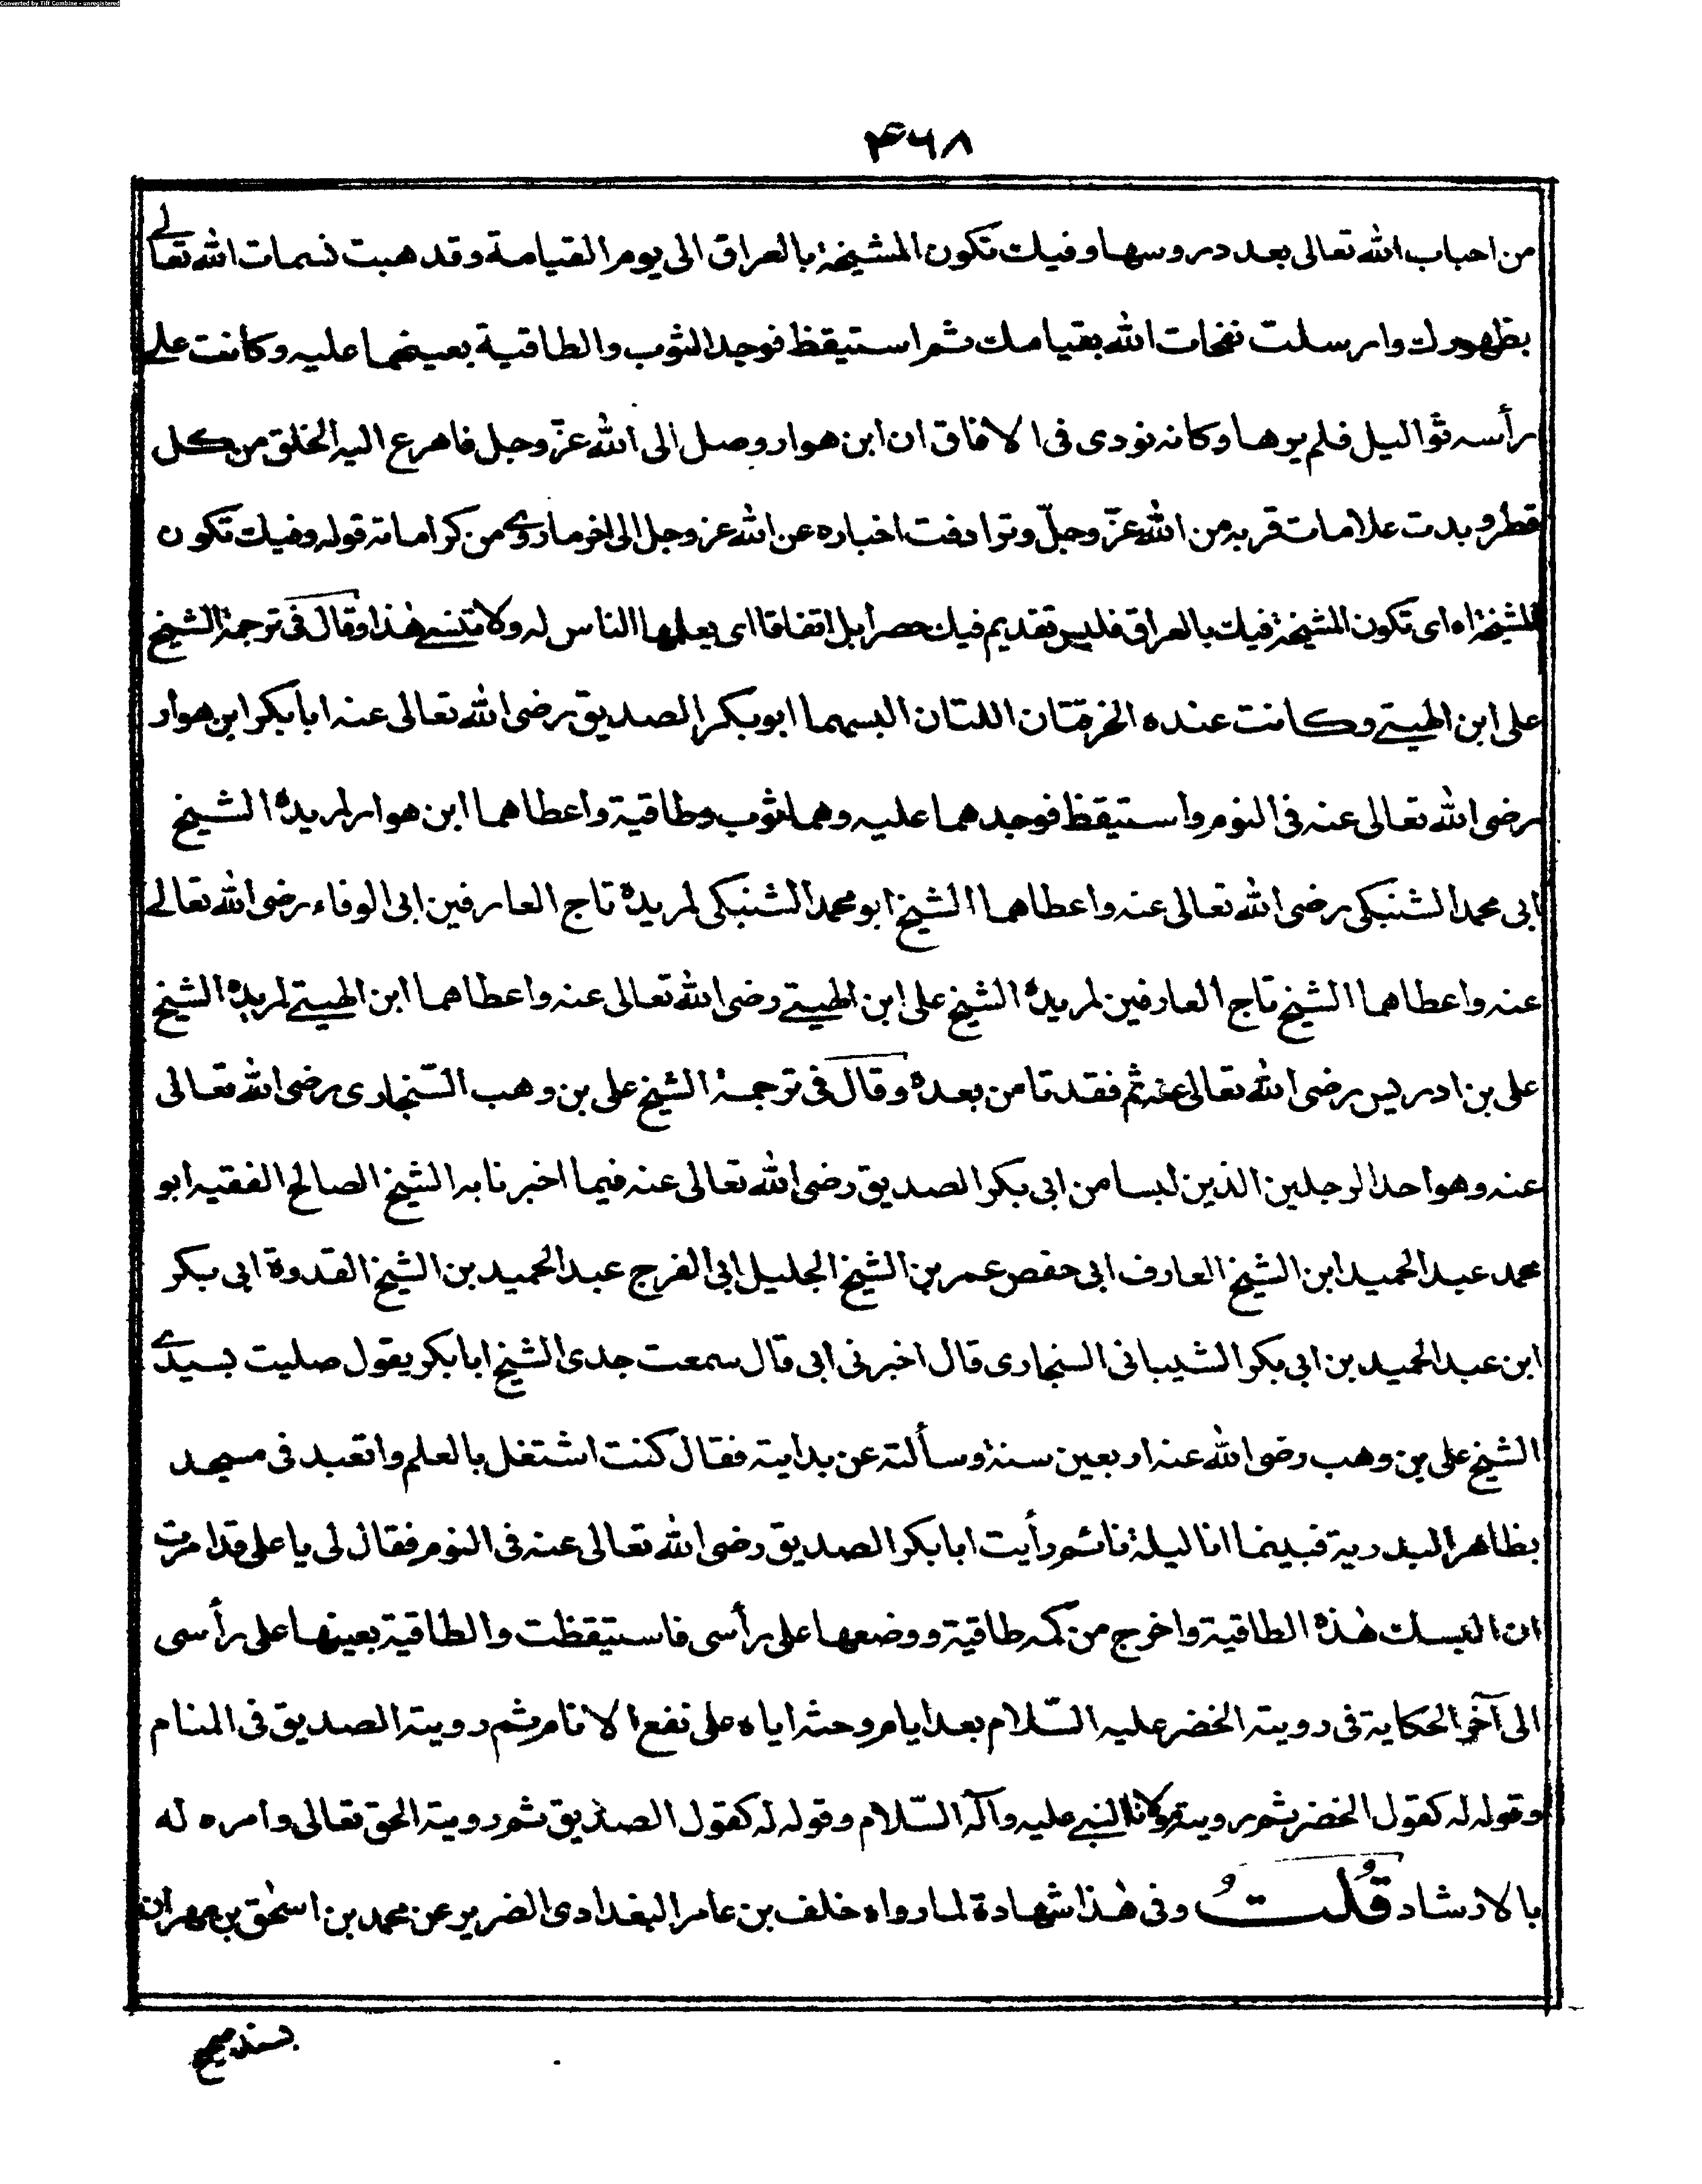 Converted by Tiff Combine - unregistered
۴۶۸
من احباب الله تعالى بعد دروسها وفيك تكون المشيخة بالعراق الى يوم القيامة وقد هبت نسمات الله تعالى
بظهورك وارسلت نفحات الله بقيامك ثم استيقظ فوجد الثوب والطاقية بعينهما عليه وكانت على
رأسه ثواليل فلم يرها وكانه نودى فى الافاق ان ابن هوار وصل الى الله عزّ وجل فاهرع اليه الخلق من كل
قطر وبدت علامات قربه من الله عزّ وجلّ وترادفت اخباره عن الله عز وجل الى اخر ما روى من كراماته قوله وفيك تكون
المشيخة اه اى تكون المشيخة فيك بالعراق فليس تقديم فيك حصرا بل اتفاقا اى يعلمها الناس له ولا تنسى هٰذا وقال فى ترجمة الشيخ
على ابن الهيتى وكانت عنده الخرقتان اللتان البسهما ابوبكر الصديق رضى الله تعالى عنه ابا بكر ابن هوار
رضى الله تعالى عنه فى النوم واستيقظ فوجدهما عليه وهما ثوب وطاقية واعطاهما ابن هوار لمريده الشيخ
ابى محمد الشنبكى رضى الله تعالى عنه واعطاهما الشيخ ابو محمد الشنبكى لمريده تاج العارفين ابى الوفاء رضى الله تعالى
عنه واعطاهما الشيخ تاج العارفين لمريده الشيخ على ابن الهيتى رضى الله تعالى عنه واعطاهما ابن الهيتى لمريده الشيخ
على بن ادريس رضى الله تعالى عنه ثم فقدتا من بعده وقال فى ترجمة الشيخ على بن وهب السّنجارى رضى الله تعالى
عنه وهو احد الرجلين الذين لبسا من ابى بكر الصديق رضى الله تعالى عنه فيما اخبرنا به الشيخ الصالح الفقيه ابو
محمد عبد الحميد ابن الشيخ العارف ابى حفص عمر بن الشيخ الجليل ابى الفرج عبد الحميد بن الشيخ القدوة ابى بكر
ابن عبد الحميد بن ابى بكر الشيبانى السنجارى قال اخبرنى ابى قال سمعت جدى الشيخ ابا بكر يقول صليت بسيدى
الشيخ على بن وهب رضى الله عنه اربعين سنة وسألته عن بدايته فقال كنت اشتغل بالعلم واتعبد فى مسجد
بظاهر البدرية فبينما انا ليلة نائم رأيت ابا بكر الصديق رضى الله تعالى عنه فى النوم فقال لى يا على قد امرت
ان البسك هٰذه الطاقية واخرج من كمه طاقية ووضعها على رأسى فاستيقظت والطاقية بعينها على رأسى
الى آخر الحكاية فى روية الخضر عليه السّلام بعد ايام وحثه اياه على نفع الانام ثم روية الصديق فى المنام
وقوله له كقول الخضر ثم روية مولانا النبى عليه وآله السّلام وقوله له كقول الصدّيق ثم روية الحق تعالى وامره له
بالارشاد قُلتُ وفى هٰذا شهادة لما رواه خلف بن عامر البغدادى الضرير عن محمد بن اسحٰق بن مهران
بسند صحيح